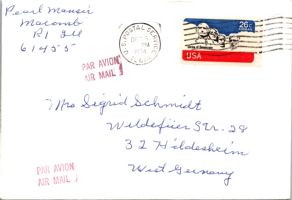 Pearl Manser
Macomb
R1 Ill
61455
U.S. POSTAL SERVICE
PM
1974
26c
USA
PAR AVION
AIR MAIL
Mrs Sigrid Schmidt
Wildefüer Str. 28
32 Hildesheim
West Germany
PAR AVION
AIR MAIL